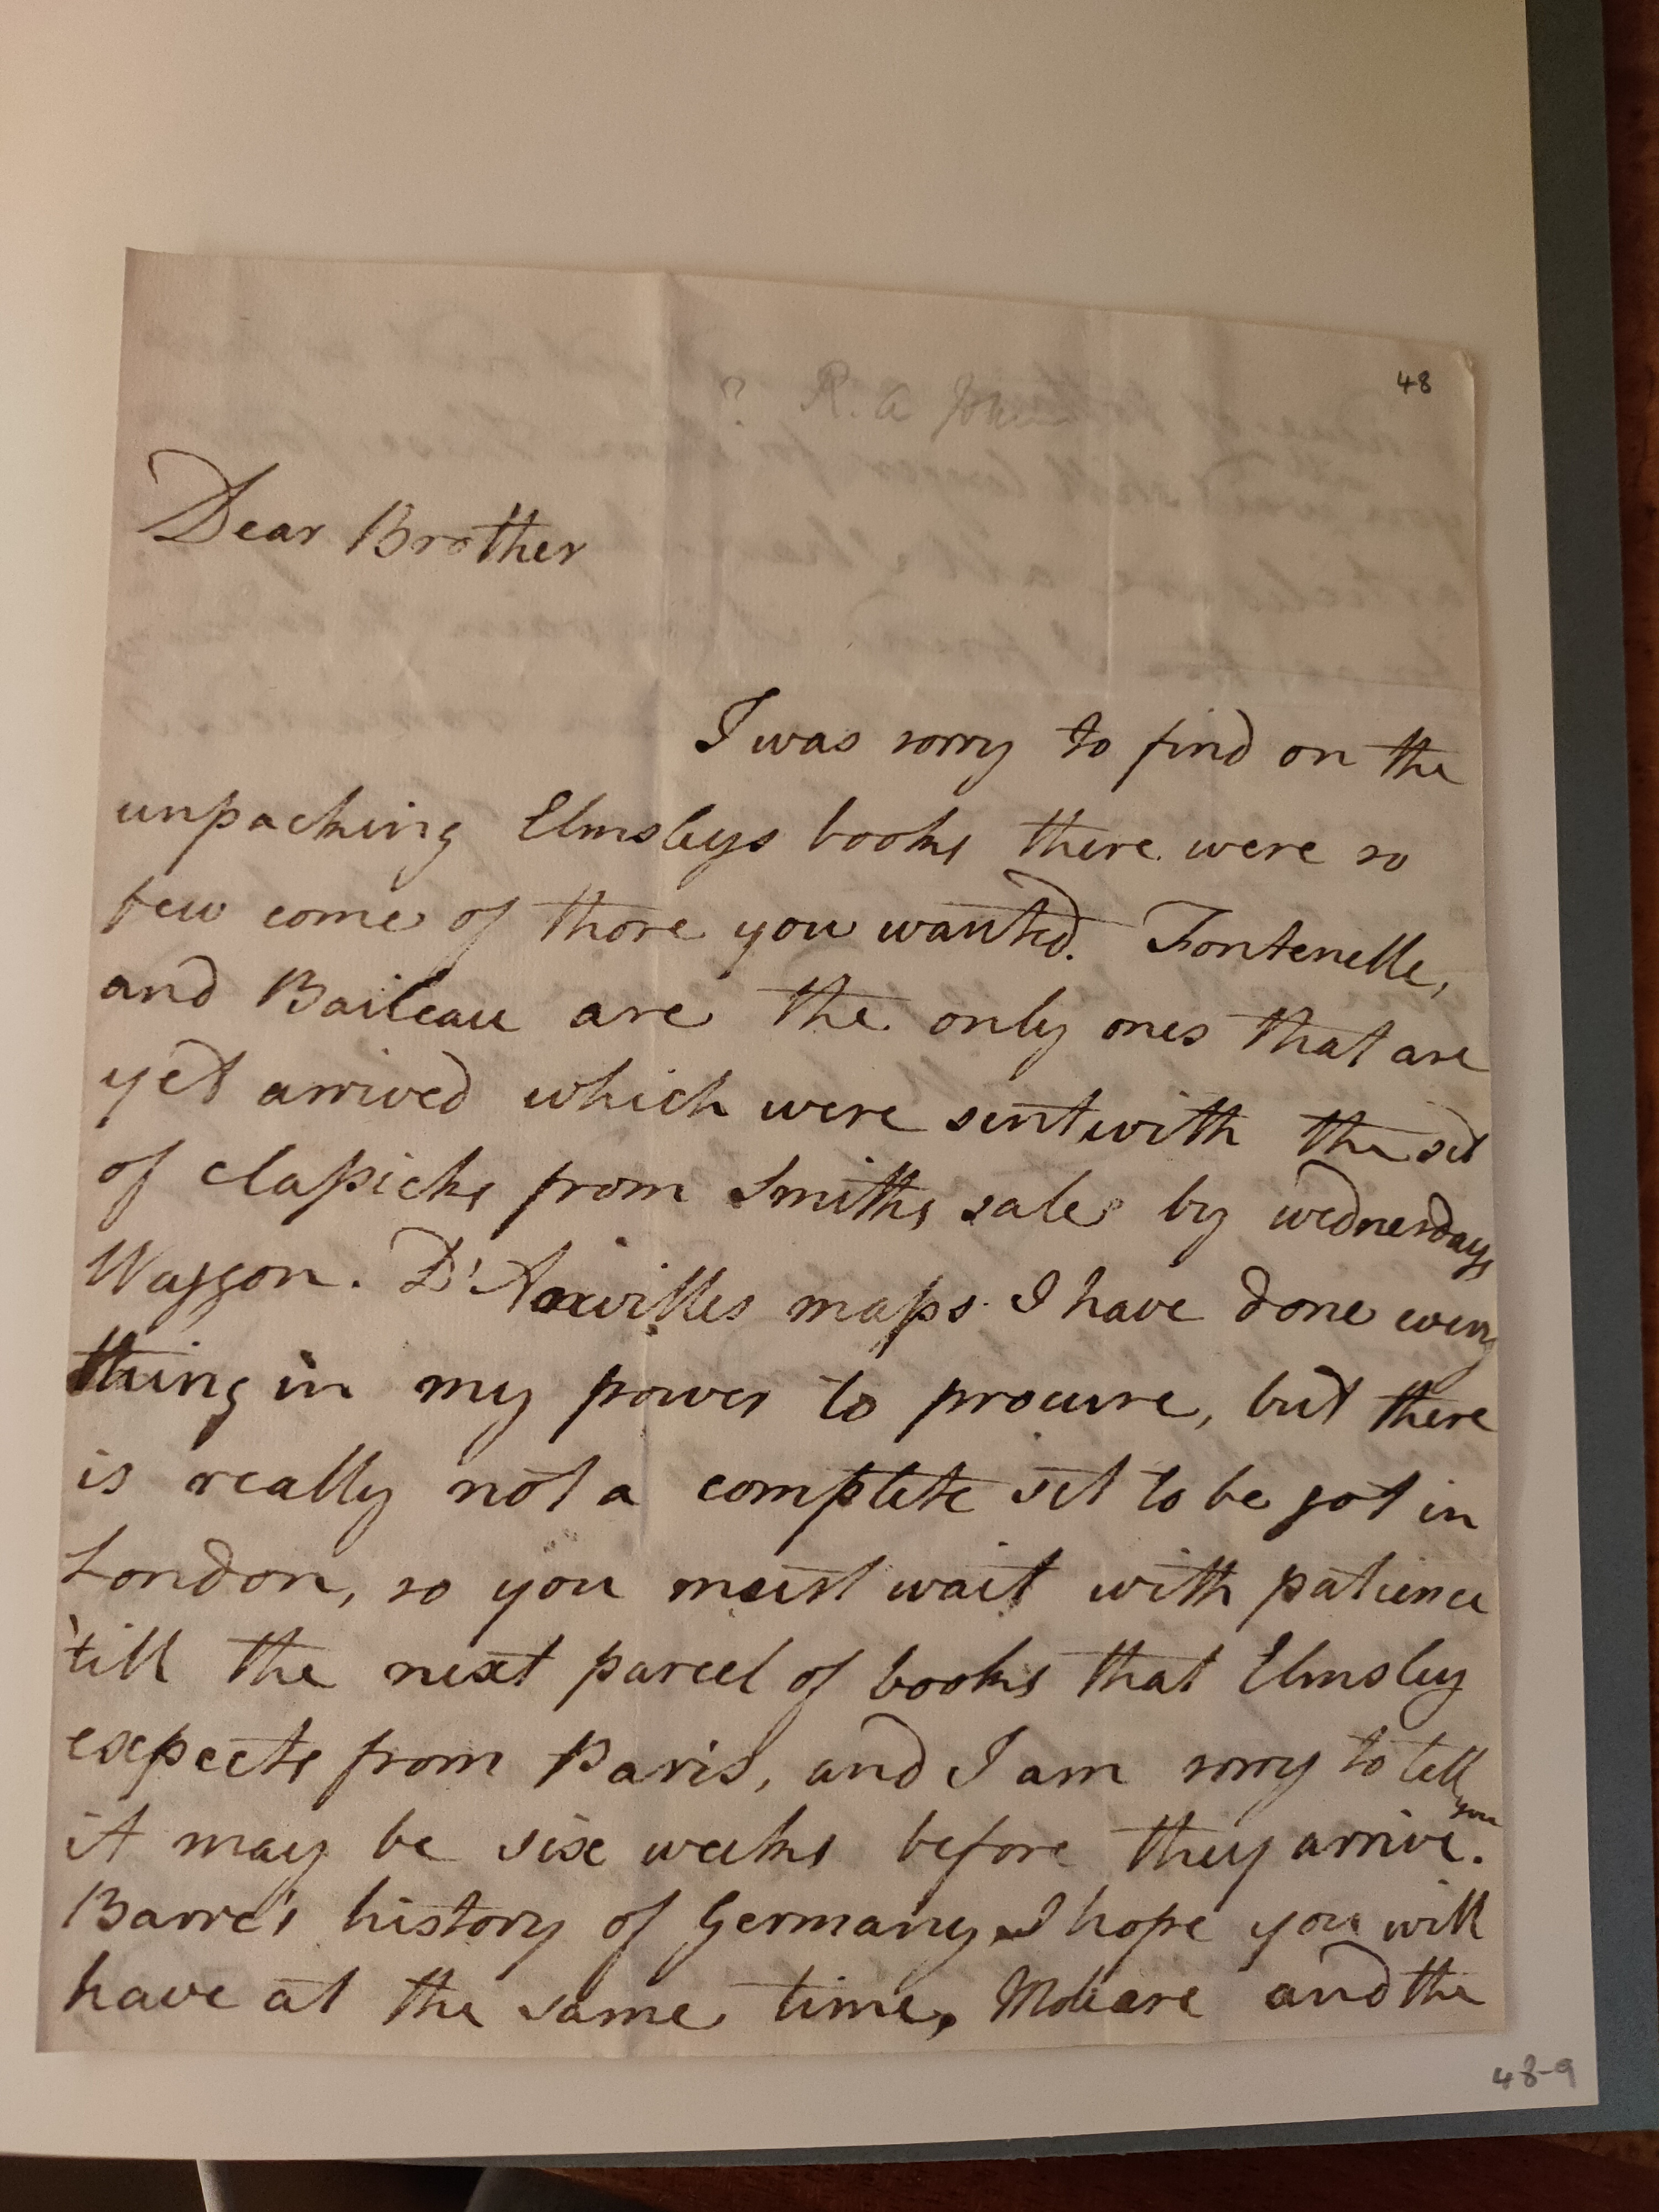 48
? R. A
Dear Brother
I was sorry to find on the
unpacking Elmsleys books there were so
few come of those you wanted. Fontenelle,
and Baileau are the only ones that are
yet arrived which were sent with the set
of classicks from Smiths sale by wednesdays
Waggon. D'Anvilles maps I have done every
thing in my power to procure, but there
is really not a complete set to be got in
London, so you must wait with patience
'till the next parcel of books that Elmsley
expects from Paris, and I am sorry to tell
you
it may be six weeks before they arrive.
Barre's history of Germany I hope you will
have at the same time, Moleare and the
48-9